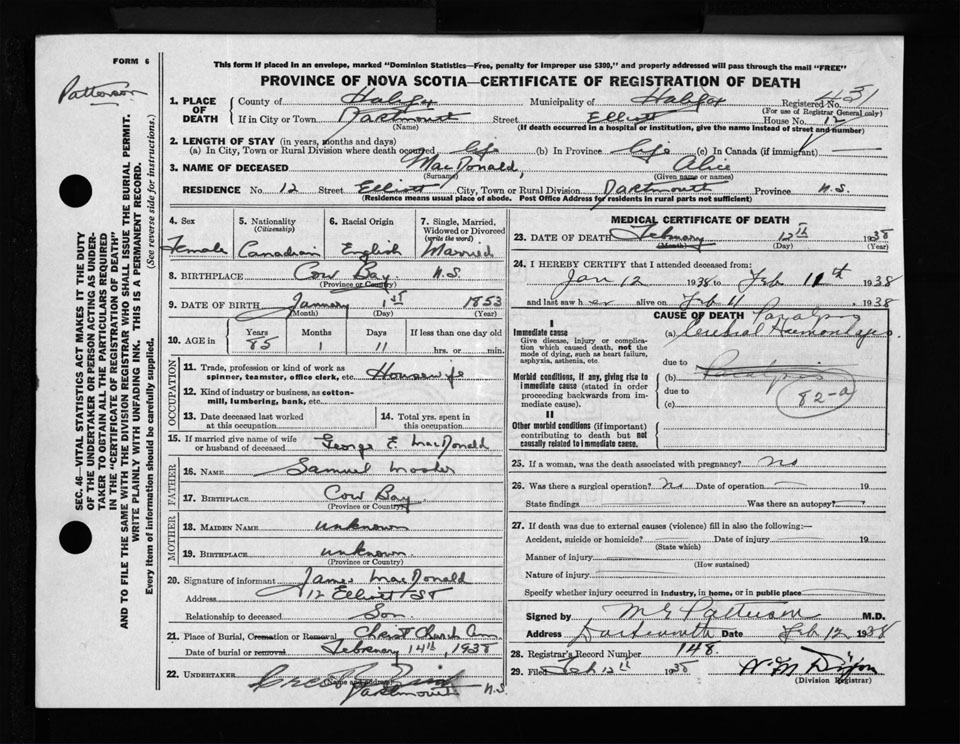 FORM 6
Patterson
This form if placed in an envelope, marked "Dominion Statistics—Free, penalty for improper use $300," and properly addressed will pass through the mail "FREE"
PROVINCE OF NOVA SCOTIA—CERTIFICATE OF REGISTRATION OF DEATH
SEC. 46—VITAL STATISTICS ACT MAKES IT THE DUTY
OF THE UNDERTAKER OR PERSON ACTING AS UNDER-
TAKER TO OBTAIN ALL THE PARTICULARS REQUIRED
IN THE "CERTIFICATE OF REGISTRATION OF DEATH"
AND TO FILE THE SAME WITH THE DIVISION REGISTRAR WHO SHALL ISSUE THE BURIAL PERMIT.
WRITE PLAINLY WITH UNFADING INK. THIS IS A PERMANENT RECORD.
Every item of information should be carefully supplied. (See reverse side for instructions.)
1. PLACE OF DEATH County of Halifax Municipality of Halifax Registered No. 431
(For use of Registrar General only)
If in City or Town Dartmouth Street Elliott House No. 12
(Name) (If death occurred in a hospital or institution, give the name instead of street and number)
2. LENGTH OF STAY (in years, months and days)
(a) In City, Town or Rural Division where death occurred life (b) In Province life (c) In Canada (if immigrant) —
3. NAME OF DECEASED MacDonald, Alice
(Surname) (Given name or names)
RESIDENCE No. 12 Street Elliott City, Town or Rural Division Dartmouth Province N.S.
(Residence means usual place of abode. Post Office Address for residents in rural parts not sufficient)
4. Sex 5. Nationality (Citizenship) 6. Racial Origin 7. Single, Married, Widowed or Divorced (write the word)
Female Canadian English Married
8. BIRTHPLACE Cow Bay N.S
(Province or Country)
9. DATE OF BIRTH January 1st 1853
(Month) (Day) (Year)
10. AGE in Years Months Days If less than one day old
85 1 11 hrs. or min.
OCCUPATION
11. Trade, profession or kind of work as spinner, teamster, office clerk, etc. Housewife
12. Kind of industry or business, as cotton-mill, lumbering, bank, etc.
13. Date deceased last worked at this occupation 14. Total yrs. spent in this occupation
15. If married give name of wife or husband of deceased George E. MacDonald
FATHER
16. NAME Samuel
17. BIRTHPLACE Cow Bay
(Province or Country)
MOTHER
18. MAIDEN NAME unknown
19. BIRTHPLACE unknown
(Province or Country)
20. Signature of informant James MacDonald
Address 12 Elliott ST
Relationship to deceased Son
21. Place of Burial, Cremation or Removal Christ Church
Date of burial or removal February 14th, 1938
22. UNDERTAKER
(Name and address)
Dartmouth N.S
MEDICAL CERTIFICATE OF DEATH
23. DATE OF DEATH February 12th 1938
(Month) (Day) (Year)
24. I HEREBY CERTIFY that I attended deceased from
Jan 12 1938 to Feb 11th 1938
and last saw her alive on Feb 4, 1938
CAUSE OF DEATH Paralysis
I
Immediate cause (a) Cerebral Haemorhages
Give disease, injury or complication which caused death, not the mode of dying, such as heart failure, asphyxia, asthenia, etc.
due to
Morbid conditions, if any, giving rise to immediate cause (stated in order proceeding backwards from immediate cause). (b) Paralysis
due to 82-a
(c)
II
Other morbid conditions (if important) contributing to death but not causally related to immediate cause.
25. If a woman, was the death associated with pregnancy? No
26. Was there a surgical operation? No Date of operation — 19
State findings Was there an autopsy?
27. If death was due to external causes (violence) fill in also the following:—
Accident, suicide or homicide? Date of injury 19
(State which)
Manner of injury
(How sustained)
Nature of injury
Specify whether injury occurred in Industry, in home, or in public place
Signed by M G Patterson M.D.
Address Dartmouth Date Feb 12 1938
28. Registrar's Record Number 148
29. Filed Feb 12th 1938
(Division Registrar)